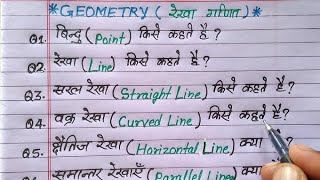 *GEOMETRY ( रेखा गणित )*
Q1. बिन्दु (Point) किसे कहते है?
Q2. रेखा (Line) किसे कहते है?
Q3. सरल रेखा (Straight Line) किसे कहते है?
Q4. वक्र रेखा (Curved Line) किसे कहते है?
Q5. क्षैतिज रेखा (Horizontal Line) क्या है?
समान्तर रेखाएँ (Parallel Lines)